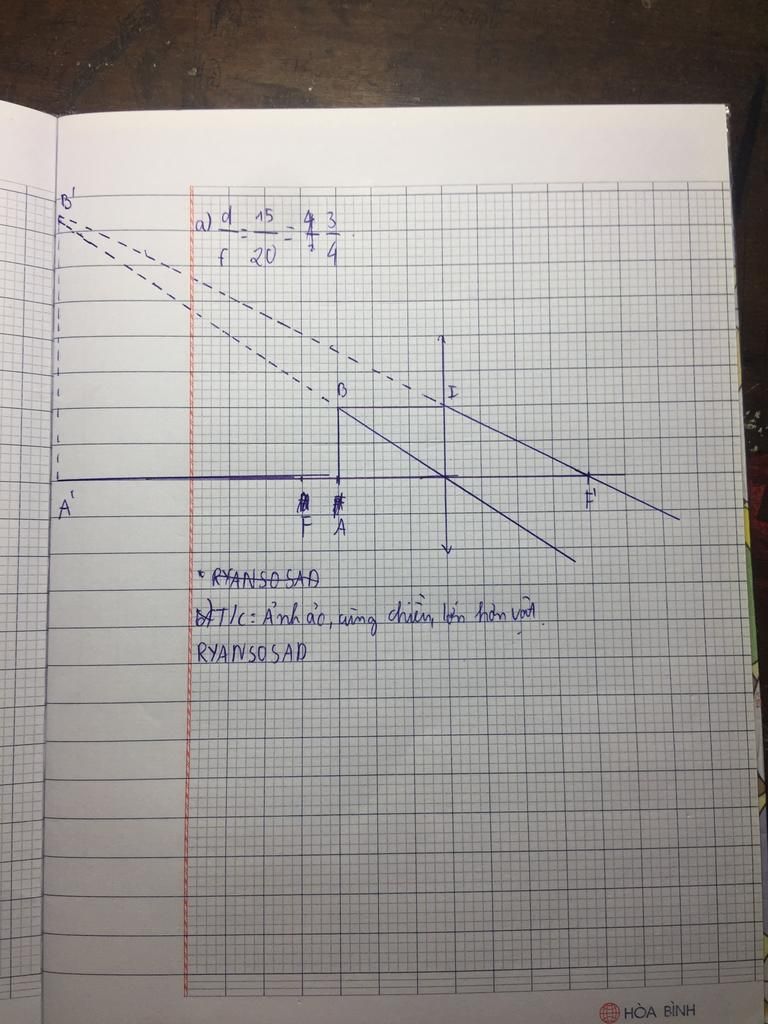 B'
a) d/f = 15/20 = 3/4.
B
I
A'
F
A
F'
RYANSOSAD
T/c: Ảnh ảo, cùng chiều, lớn hơn vật.
RYANSOSAD
HÒA BÌNH